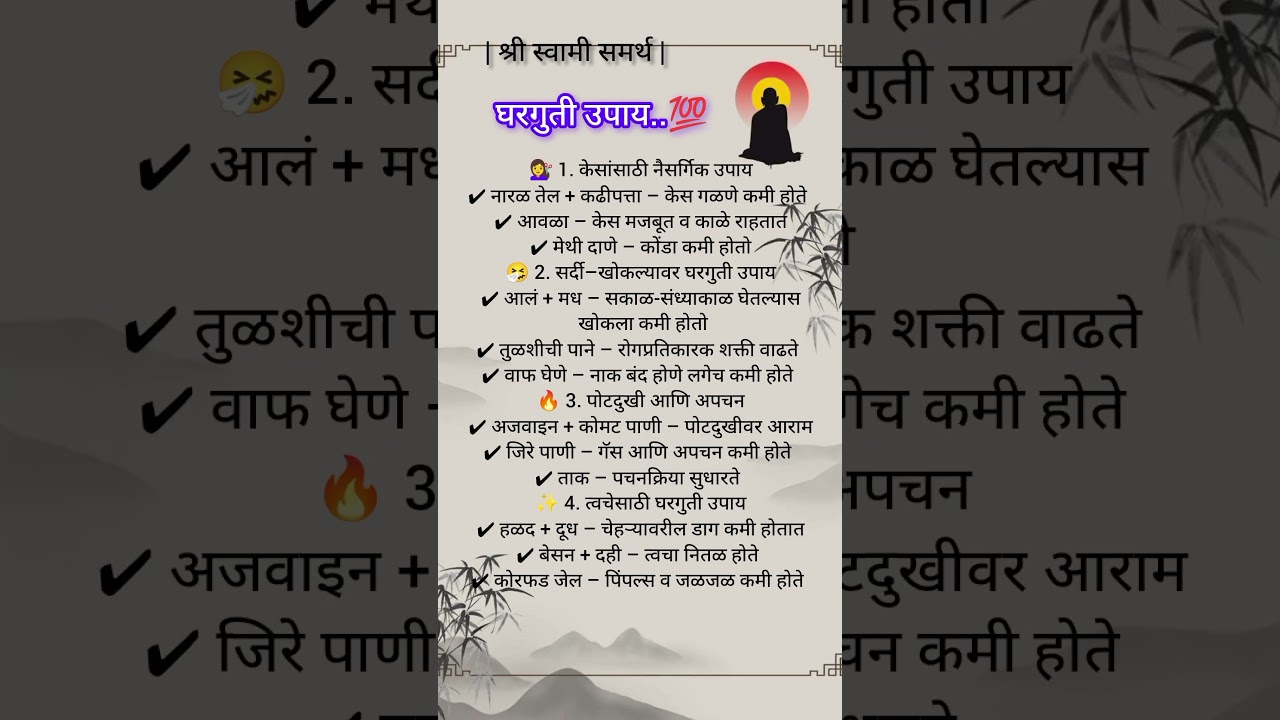 | श्री स्वामी समर्थ |
घरगुती उपाय..💯
💇‍♀️ 1. केसांसाठी नैसर्गिक उपाय
✔ नारळ तेल + कढीपत्ता – केस गळणे कमी होते
✔ आवळा – केस मजबूत व काळे राहतात
✔ मेथी दाणे – कोंडा कमी होतो
🤧 2. सर्दी–खोकल्यावर घरगुती उपाय
✔ आलं + मध – सकाळ-संध्याकाळ घेतल्यास
खोकला कमी होतो
✔ तुळशीची पाने – रोगप्रतिकारक शक्ती वाढते
✔ वाफ घेणे – नाक बंद होणे लगेच कमी होते
🔥 3. पोटदुखी आणि अपचन
✔ अजवाइन + कोमट पाणी – पोटदुखीवर आराम
✔ जिरे पाणी – गॅस आणि अपचन कमी होते
✔ ताक – पचनक्रिया सुधारते
✨ 4. त्वचेसाठी घरगुती उपाय
✔ हळद + दूध – चेहऱ्यावरील डाग कमी होतात
✔ बेसन + दही – त्वचा नितळ होते
✔ कोरफड जेल – पिंपल्स व जळजळ कमी होते